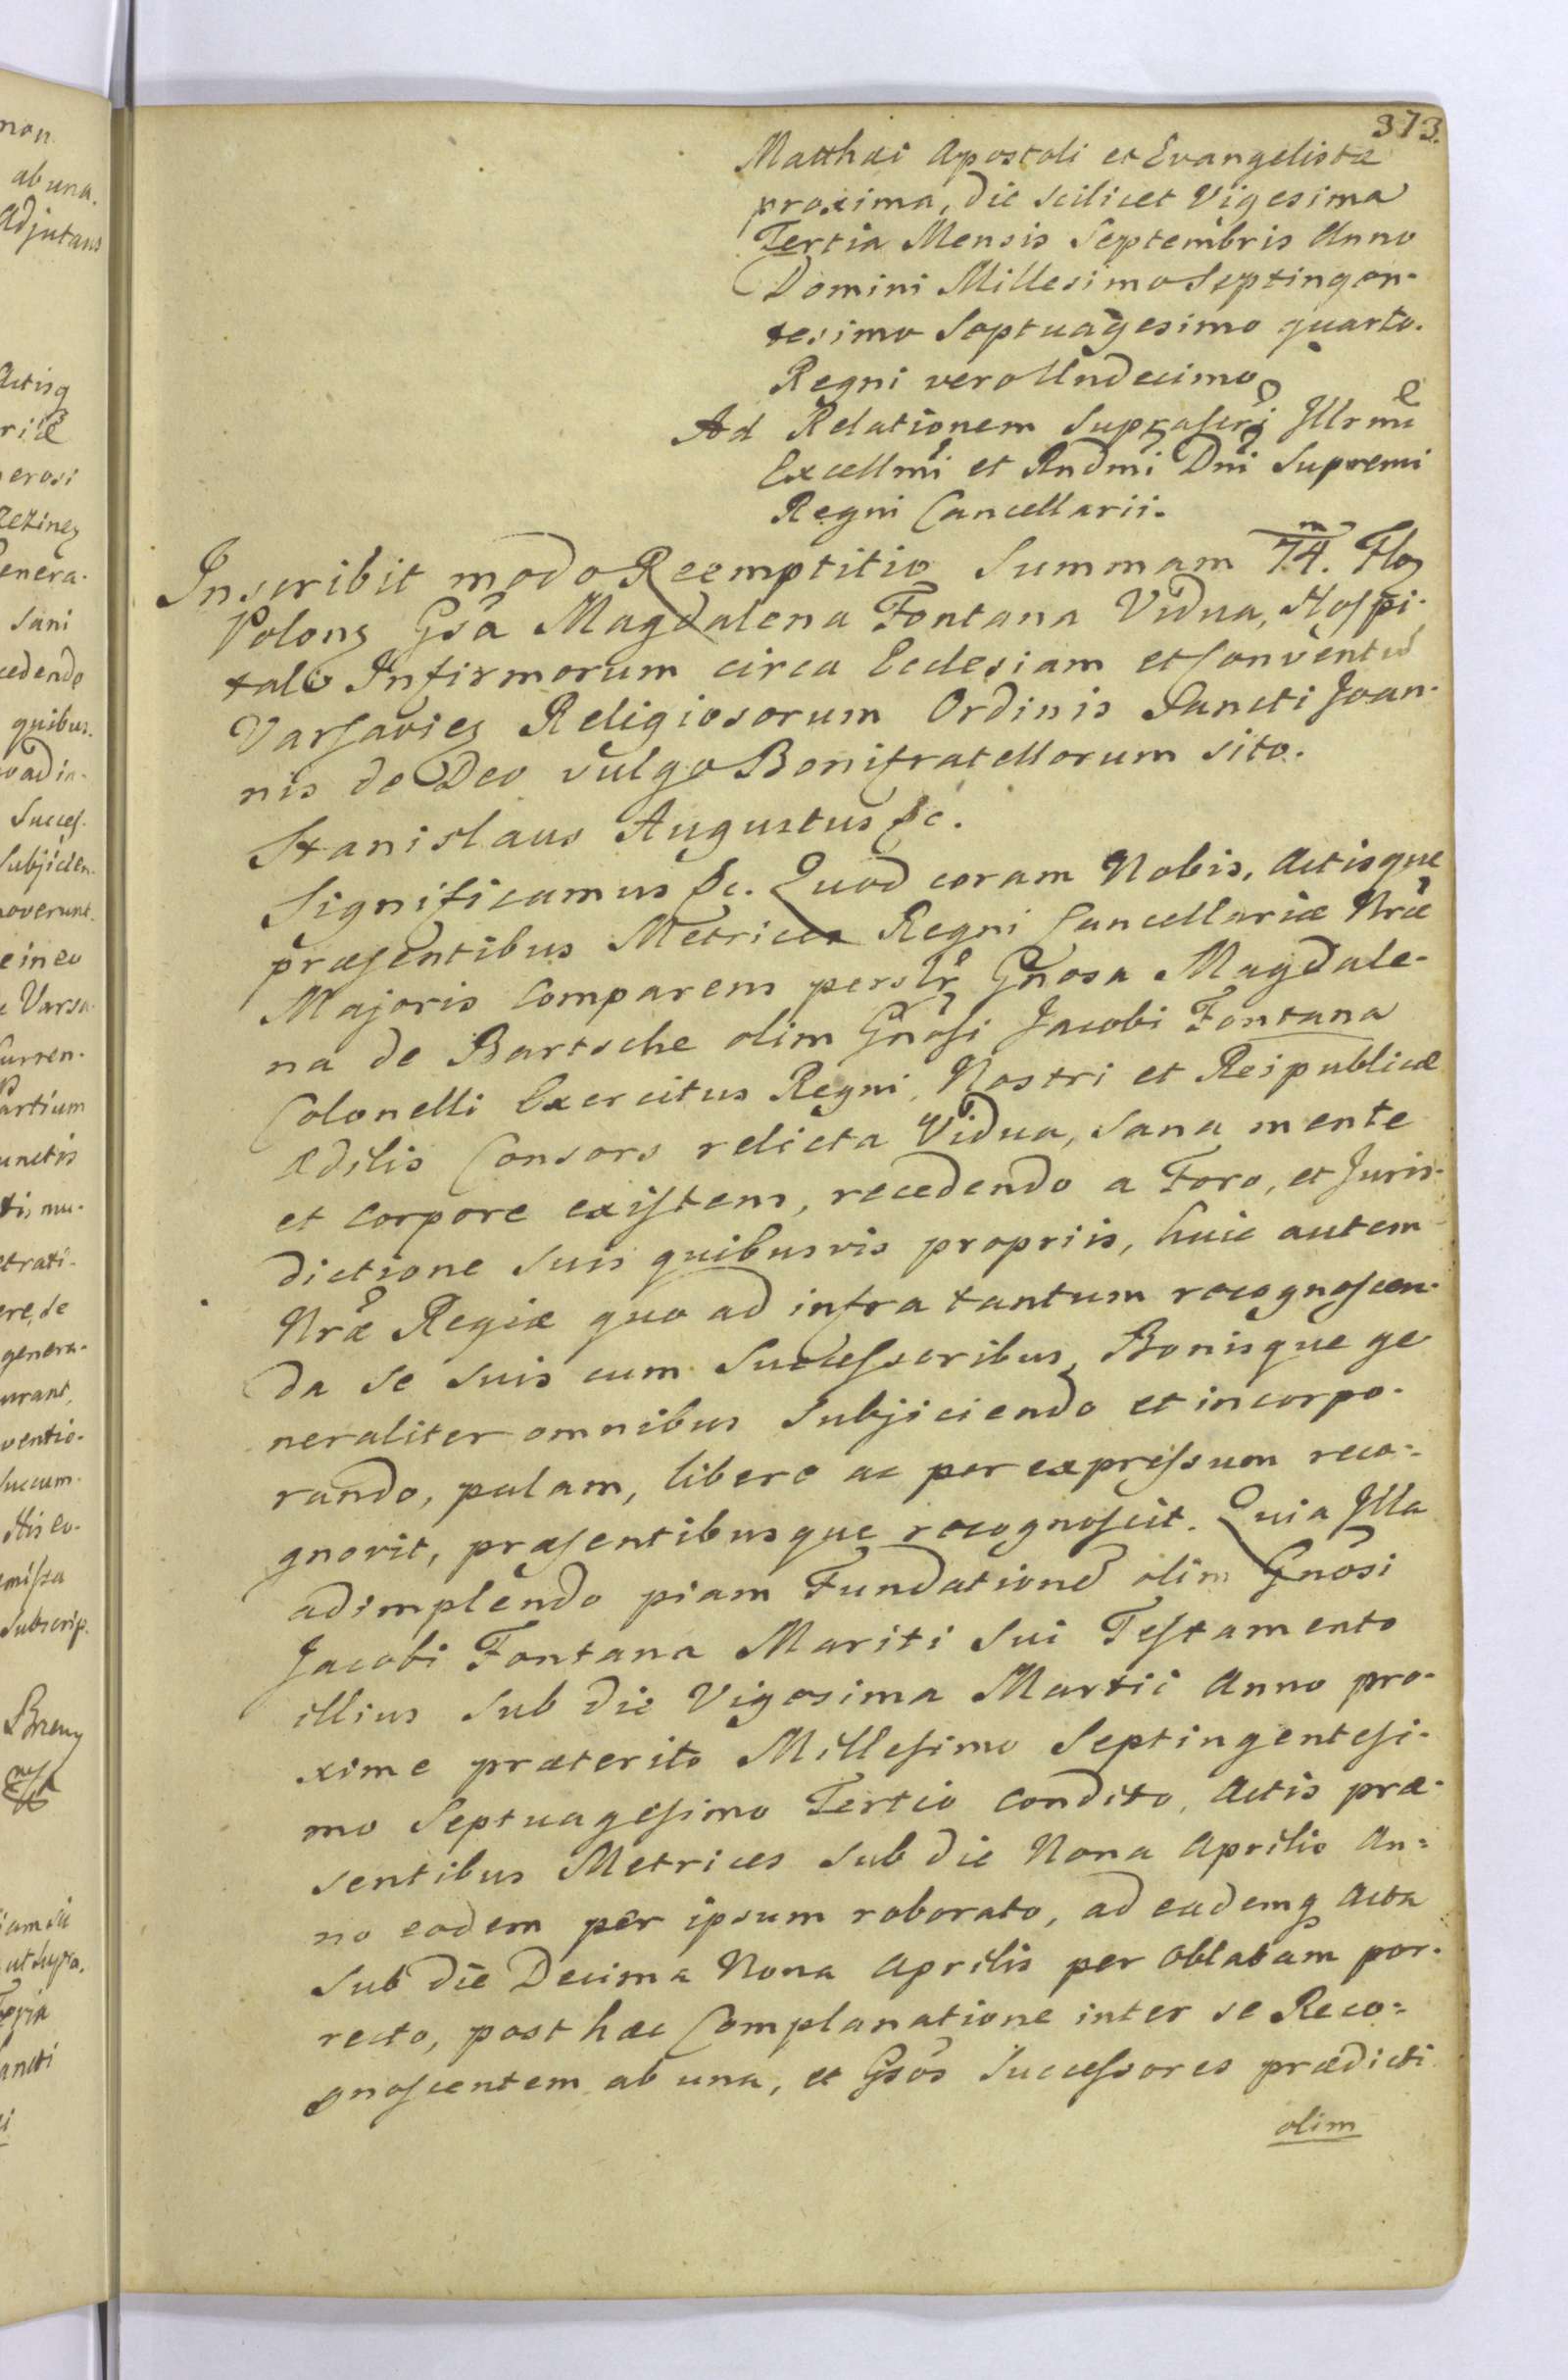 373.
Matthæi Apostoli et Evangelistæ
proxima, die scilicet Vigesima
Tertia Mensis Septembris Anno
Domini Millesimo Septingen-
tesimo Septuagesimo quarto.
Regni vero Undecimo
Ad Relationem suprascri Illrmi
Excellmi et Rndmi Dni Supremi
Regni Cancellarii.
Inscribit modo Reemptitio Summam 74. Flo
Polon Gsa Magdalena Fontana Vidua, Hospi-
tali Infirmorum circa Ecclesiam et Conventū
Varsavien Religiosorum Ordinis Sancti Joan-
nis de Deo vulgo Bonifratellorum sito.
Stanislaus Augustus &c.
Significamus &c. Quod coram Nobis, Actisque
præsentibus Metrices Regni Cancellariæ Nræ
Majoris comparens personlr Gnosa Magdale-
na de Bartsche olim Gnosi Jacobi Fontana
Colonelli Exercitus Regni, Nostri et Reipublicæ
Ædilis Consors relicta Vidua, sana mente
et corpore existens, recedendo a Foro, et Juris-
dictione suis quibusvis propriis, huic autem
Nræ Regiæ quo ad infra tantum recognoscen-
da se suis cum Successoribus, Bonisque ge
neraliter omnibus subjiciendo et incorpo-
rando, palam, libere ac per expressum reco-
gnovit, præsentibusque recognoscit. Quia Illa
adimplendo piam Fundationē olim Gnosi
Jacobi Fontana Mariti sui Testamento
illius sub die Vigesima Martii Anno pro-
xime præterito Millesimo Septingentesi-
mo Septuagesimo Tertio condito, Actis præ-
sentibus Metrices sub die Nona Aprilis An=
no eodem per ipsum roborato, ad eademq Acta
sub die Decima Nona Aprilis per Oblatam por-
recto, post hæc Complanatione inter se Reco=
gnoscentem ab una, et Gsos Successores prædicti
olim
non
ab una.
Adjutans
erosi
enera-
sani
cedendo
quibus.
vadia-
Succes-
subjicien-
noverunt.
e in eo
Varsa-
Curren-
Partium
unctis
trati-
ere, se
genera-
urant,
ventio-
succum-
missa
subscrip.
ut supra.
ancti